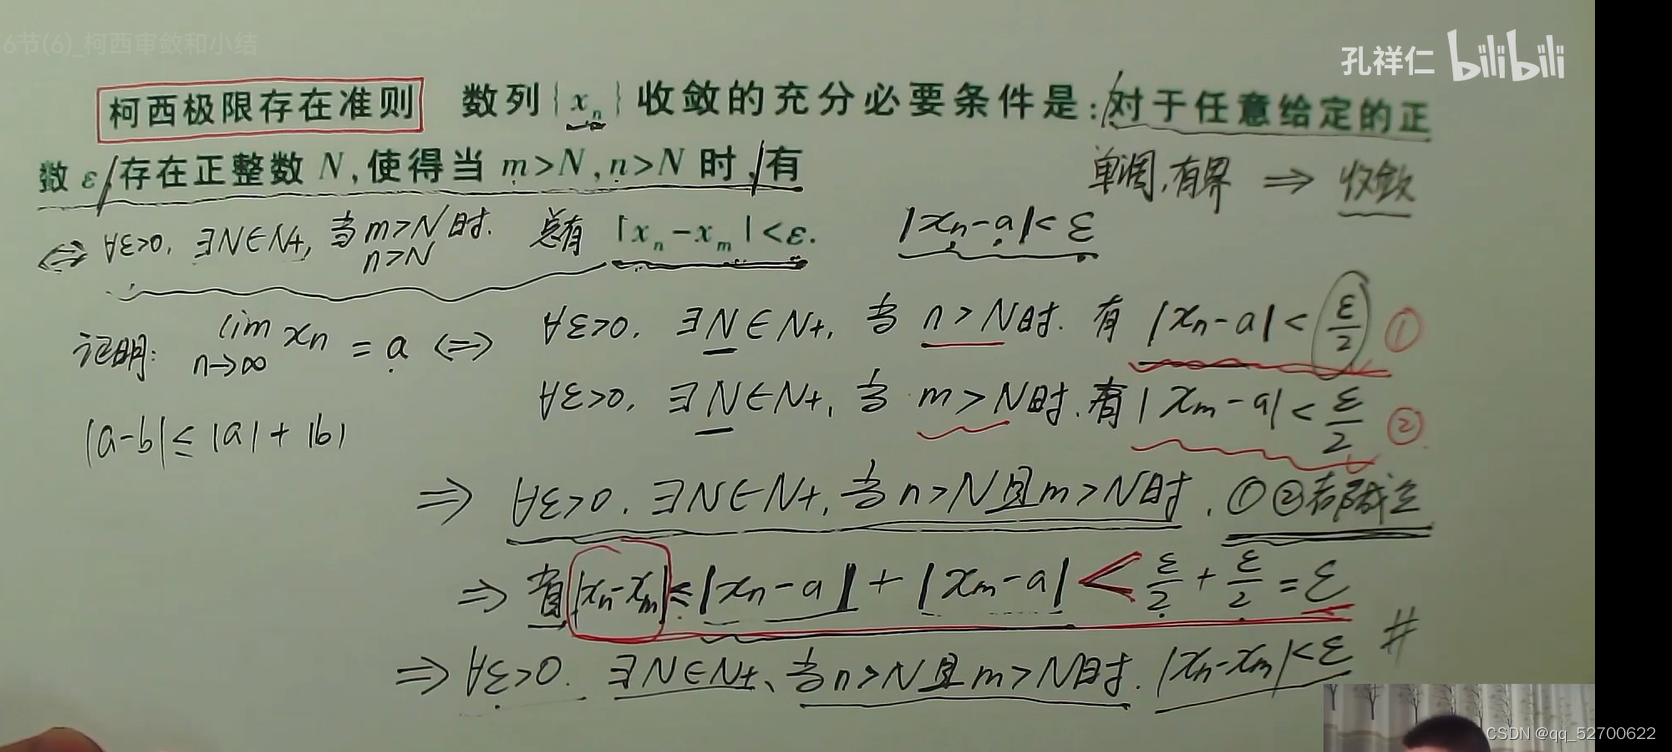 6节(6)_柯西审敛和小结
孔祥仁 bilibili
柯西极限存在准则 数列{xₙ}收敛的充分必要条件是:对于任意给定的正
数 ε,存在正整数 N,使得当 m>N,n>N 时,有
单调,有界 ⇒ 收敛
⇔ ∀ε>0, ∃N∈N+, 当 m>N n>N 时. 总有 |xₙ-xₘ|<ε.
|xₙ-a|<ε
证明: lim n→∞ xₙ = a ⇔ ∀ε>0, ∃N∈N+, 当 n>N时. 有 |xₙ-a|<ε/2 ①
∀ε>0, ∃N∈N+, 当 m>N时. 有 |xₘ-a|<ε/2 ②
|a-b|≤|a|+|b|
⇒ ∀ε>0, ∃N∈N+, 当n>N且m>N时, ①②都成立
⇒ 有 |xₙ-xₘ|≤|xₙ-a|+|xₘ-a|<ε/2+ε/2=ε
⇒ ∀ε>0. ∃N∈N+、当n>N且m>N时. |xₙ-xₘ|<ε #
CSDN @qq_52700622